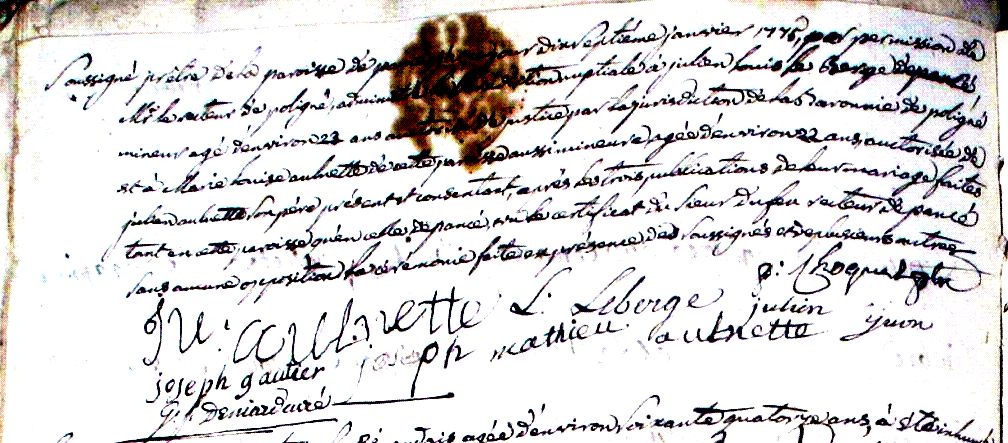 Soussigné prêtre de la paroisse de dixseptième janvier 1776, par permission de
Mr le recteur de poligné, administré nuptiale à julien Louis le Berge de pancé
mineur agé d'environ 22 ans de justice par la jurisdiction de la Baronnie de poligné
et à Marie Louise aulnette de cette paroisse aussi mineure agée d'environ 22 ans, autorisée de
julien aulnette son père présent et consentant, après les trois publications de leur mariage faites
tant en cette paroisse qu'en celle de pancé, vu le certificat du Sieur du feu recteur de pancé
sans aucune opposition la cérémonie faite en présence des soussignés et de plusieurs autres
aulnette L: Leberge
julien yvon
joseph gautier joseph mathieu aulnette
agée d'environ soixante quatorze ans, a été inhumé